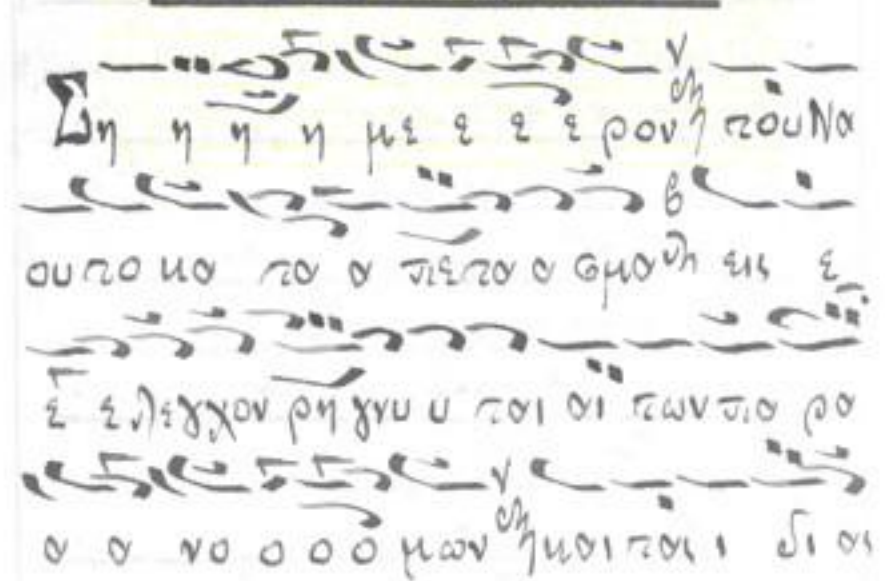 Ση η η η με ε ε ε ρον του Να
ου το κα τα α πε τα α σμα εις ε
ε ε λεγχον ρη γνυ υ ται αι των πα ρα
α α νο ο ο ο μων και τας ι δι ας